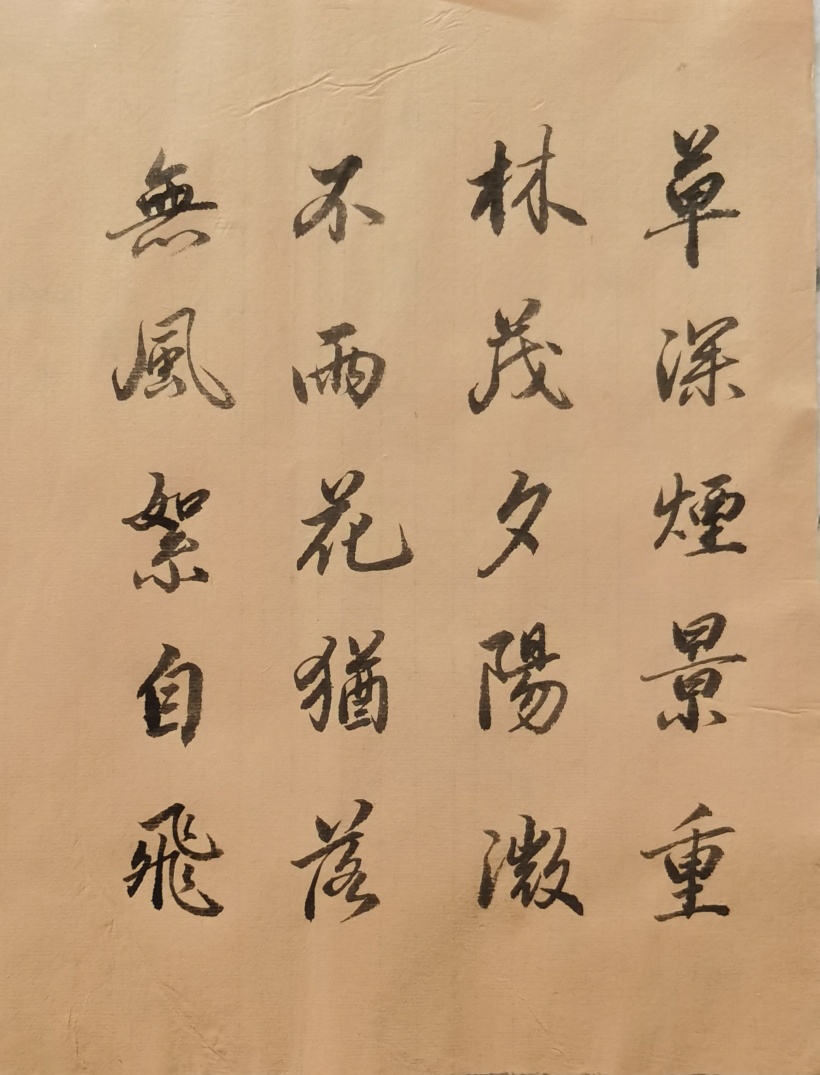 草深煙景重
林茂夕陽微
不雨花猶落
無風絮自飛